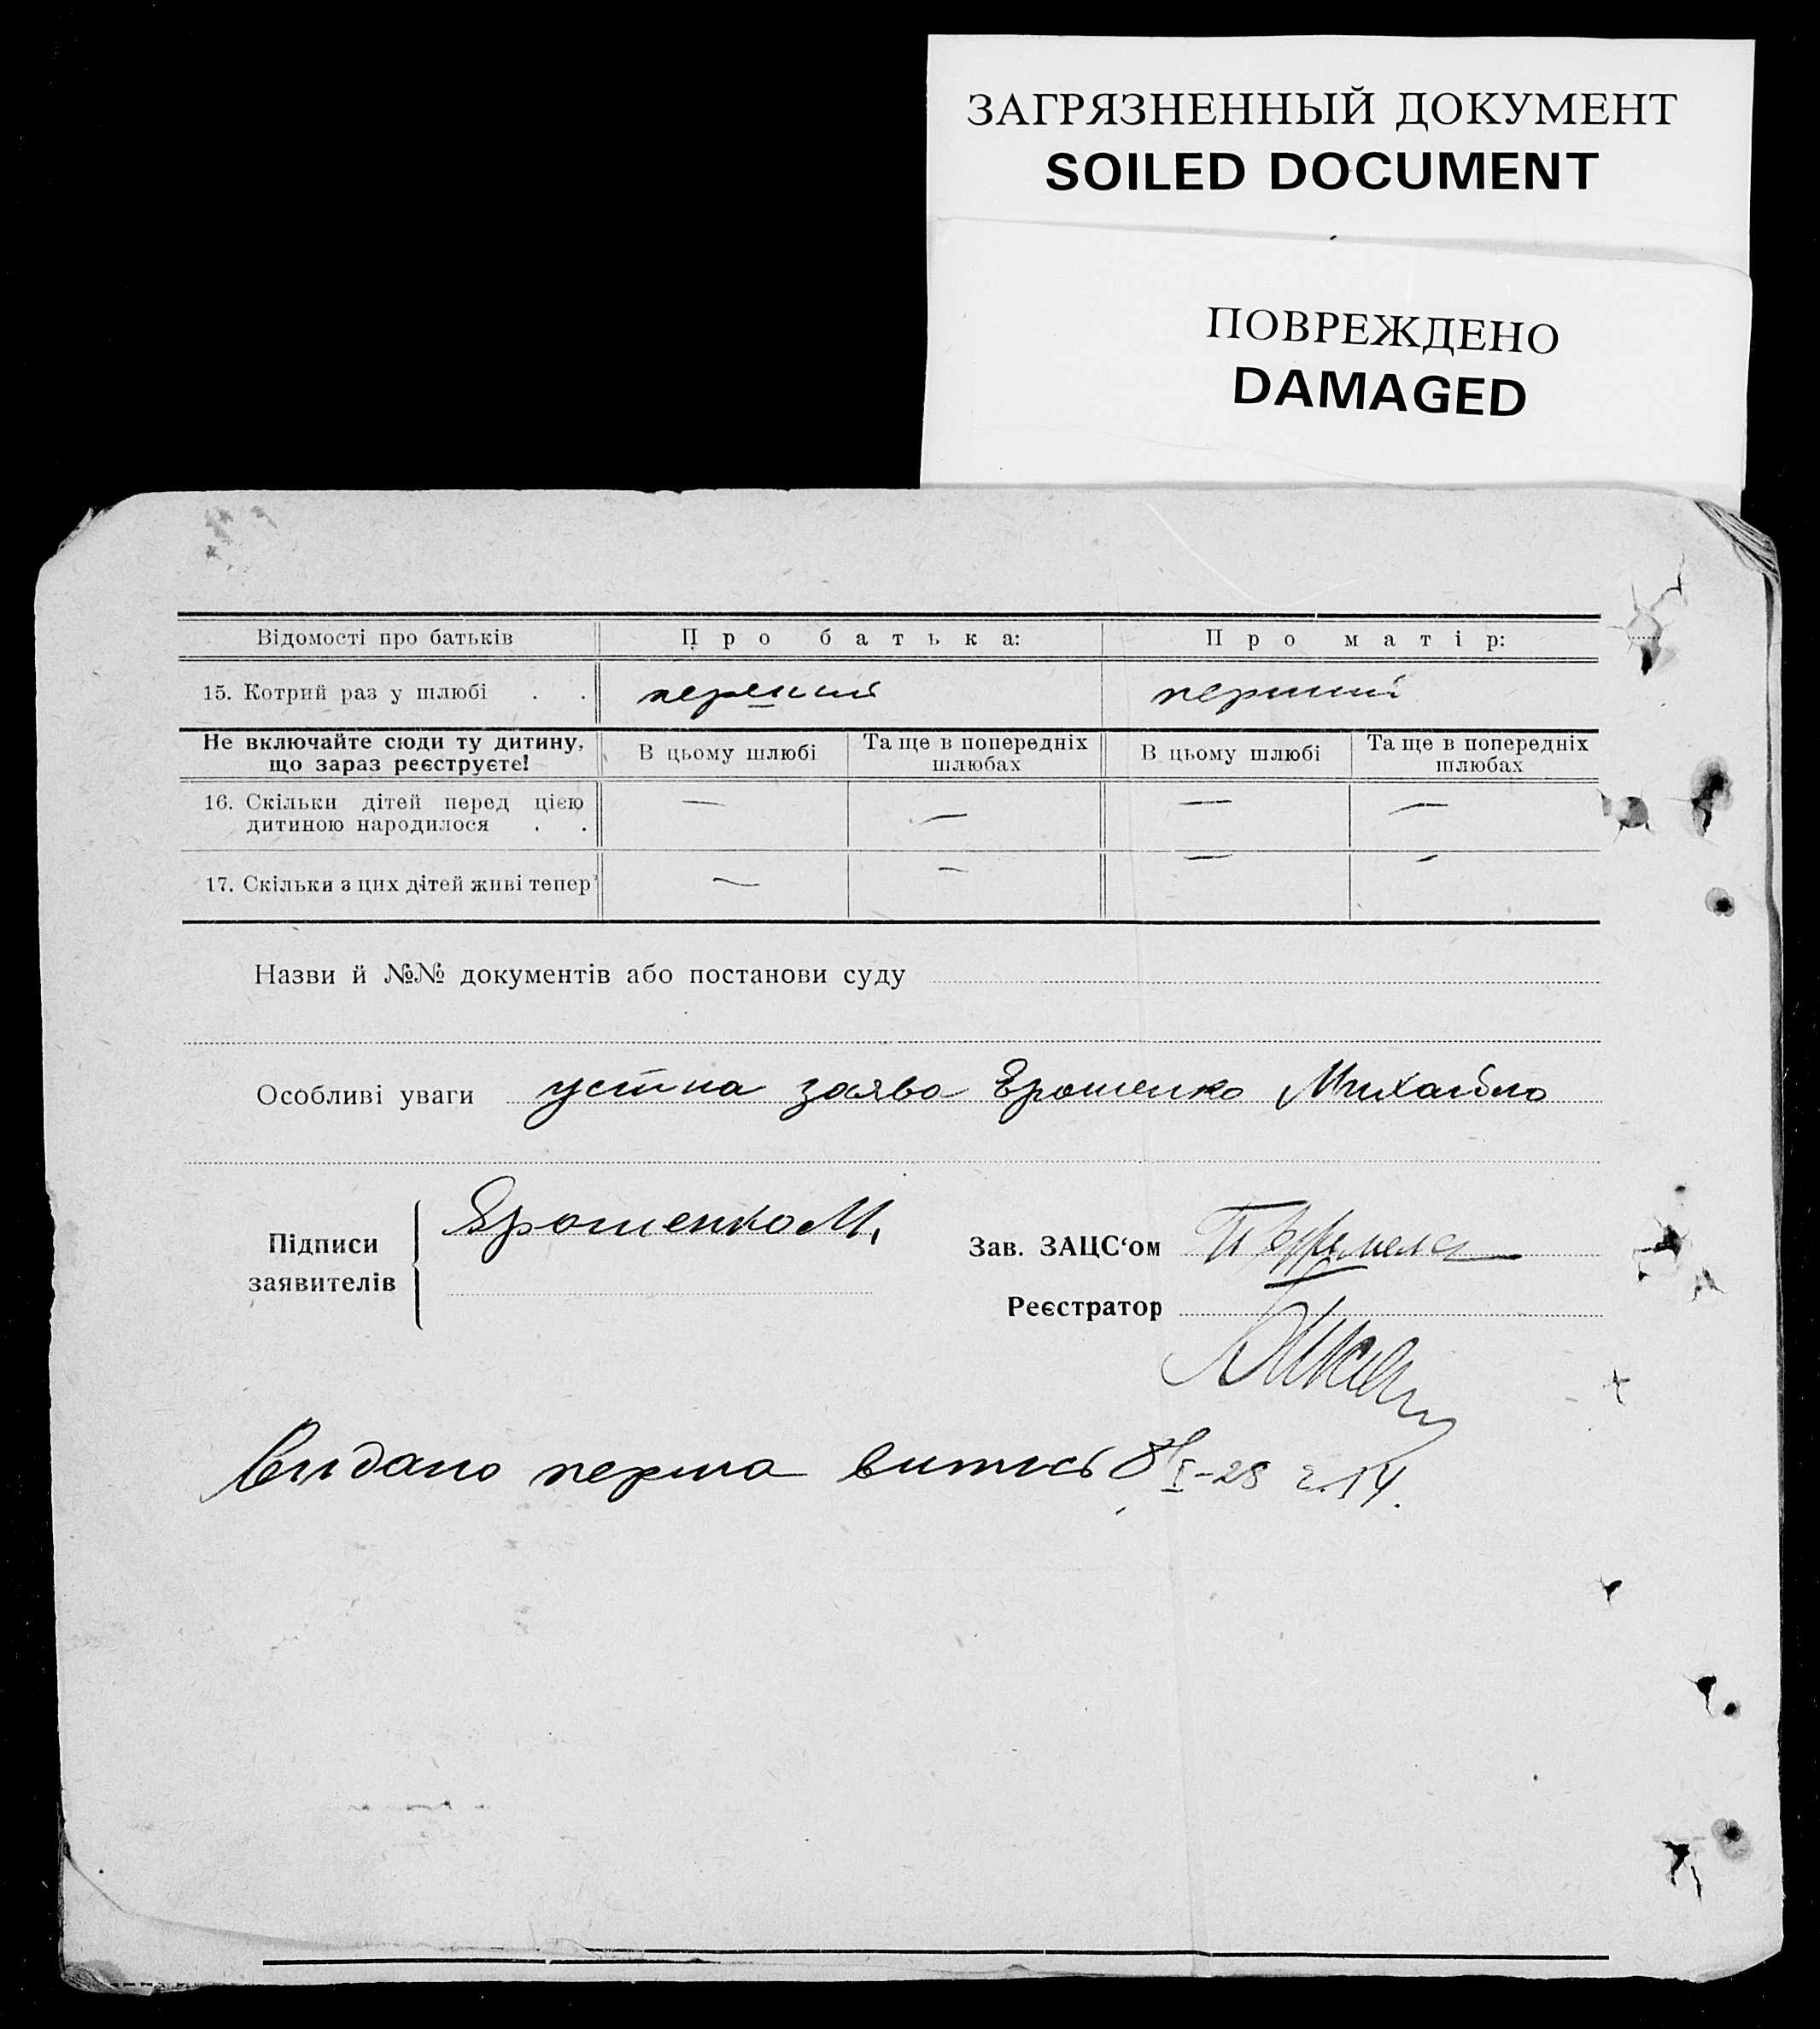 ЗАГРЯЗНЕННЫЙ ДОКУМЕНТ
SOILED DOCUMENT
ПОВРЕЖДЕНО
DAMAGED
Відомості про батьків Про батька: Про матір:
15. Котрий раз у шлюбі . . перший перший
Не включайте сюди ту дитину, що зараз реєструєте! В цьому шлюбі Та ще в попередніх шлюбах В цьому шлюбі Та ще в попередніх шлюбах
16. Скільки дітей перед цією дитиною народилося . . — — — —
17. Скільки з цих дітей живі тепер — — — —
Назви й №№ документів або постанови суду
Особливі уваги устна заява Ярошенко Михайло
Підписи заявителів Ярошенко М.
Зав. ЗАЦС‘ом
Реєстратор
Видано перша випись 8/I-28 г.